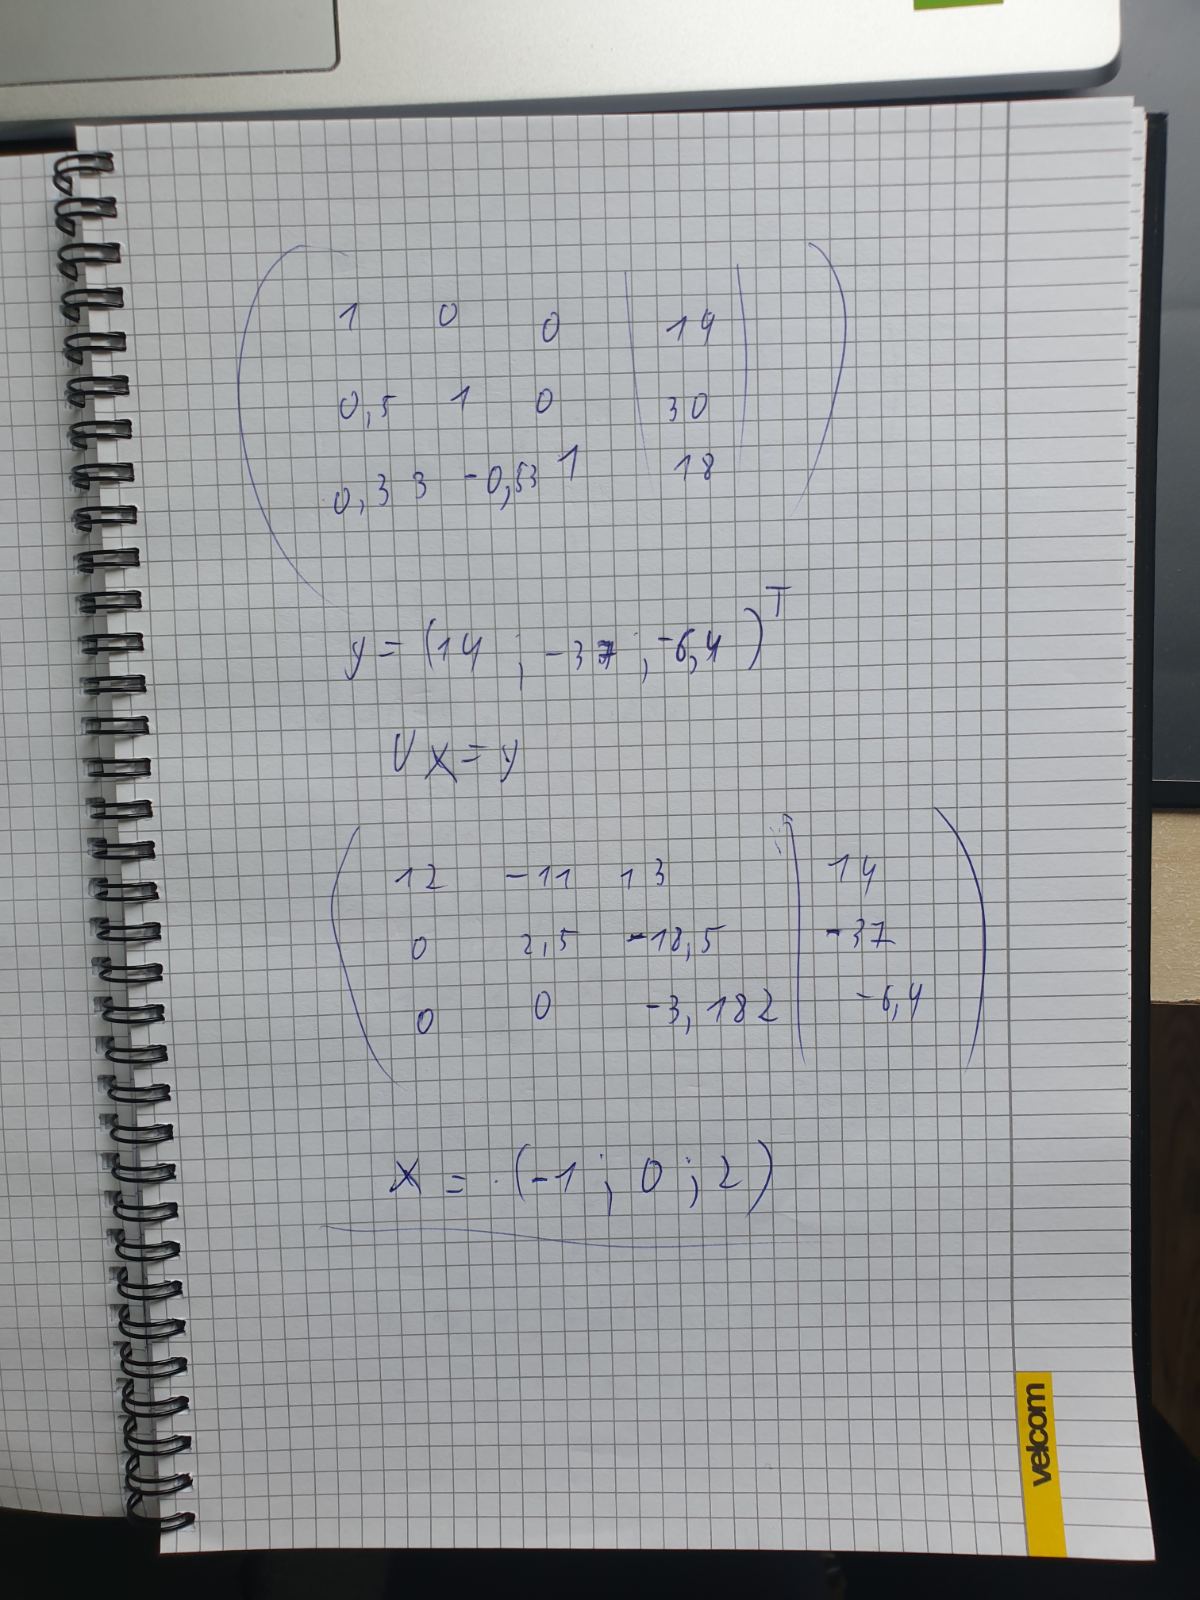 1 0 0 | 14 |
0,5 1 0 | 30 |
0,33 -0,53 1 | 18 |
y = (14 ; -37 ; -6,4)ᵀ
Ux = y
12 -11 13 | 14
0 2,5 -18,5 | -37
0 0 -3,182 | -6,4
x = (-1 ; 0 ; 2)
velcom